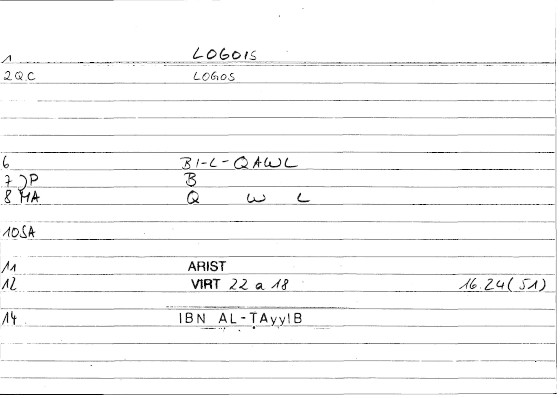 1 LOGOIS
2 QC LOGOS
6 BI-L-QAWL
7 )P B
8 MA Q W L
10 SA
11 ARIST
12 VIRT 22 a 18 16.24(51)
14 IBN AL-ṬAyyIB